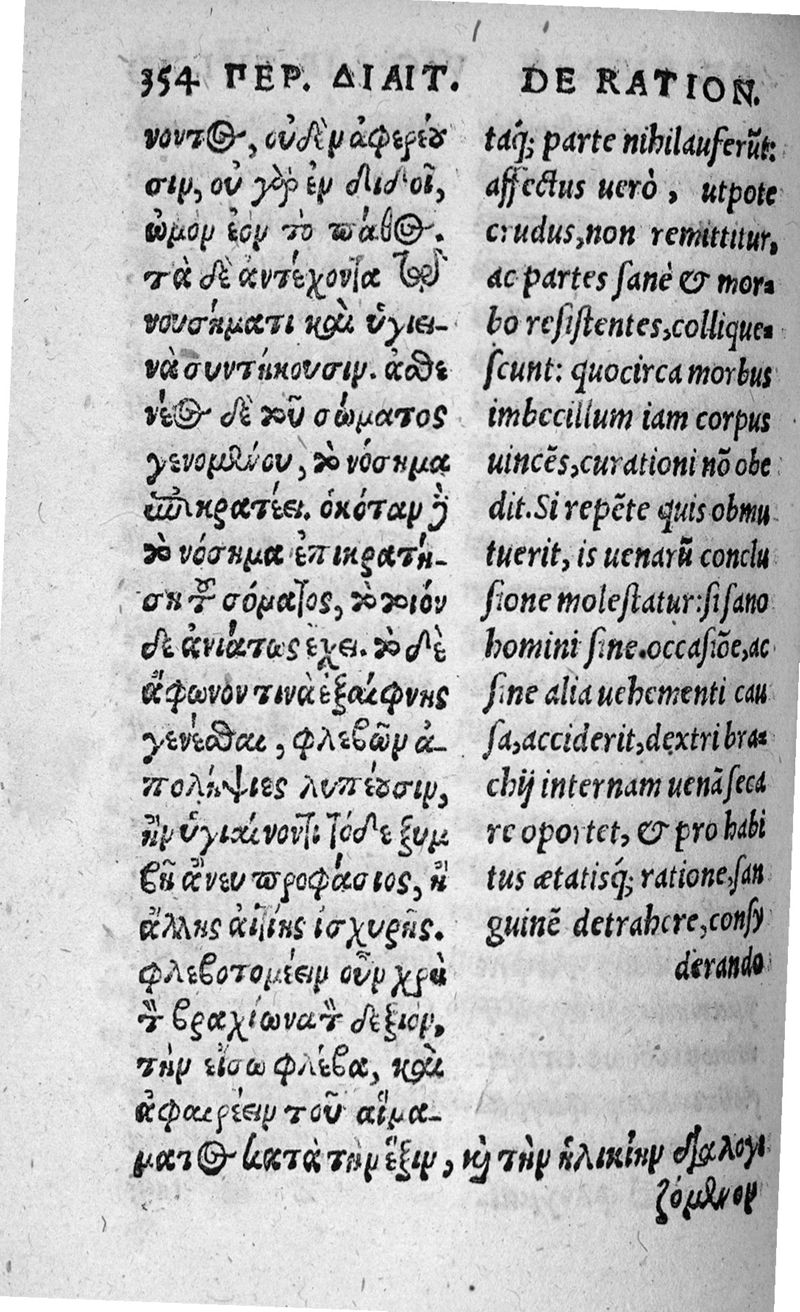 354 ΠΕΡ. ΔΙΑΙΤ.
νοντος, οὐδὲν ἀφερέου
σιν, οὐ γὰρ ἐν διδοῖ,
ὠμὸν ἐὸν τὸ πάθος.
τὰ δὲ ἀντέχοντα τῷ
νουσήματι καὶ ὑγιει-
νὰ συντήκουσιν. ἀσθε
νέος δὲ τοῦ σώματος
γενομένου, τὸ νόσημα
ἐπικρατέει. ὁκόταν δὲ
τὸ νόσημα ἐπικρατή-
σῃ τοῦ σόματος, τὸ τοιόν
δε ἀνιάτως ἔχει. τὸ δὲ
ἄφωνον τινὰ ἐξαίφνης
γενέσθαι, φλεβῶν ἀ-
πολήψιες λυπέουσιν,
ἢν ὑγιαίνοντι τόδε ξυμ
βῇ ἄνευ προφάσιος, ἢ
ἄλλης αἰτίης ἰσχυρῆς.
φλεβοτομέειν οὖν χρὴ
τὸν βραχίωνα τὸν δεξιὸν,
τὴν εἴσω φλέβα, καὶ
ἀφαιρέειν τοῦ αἵμα-
ματος κατὰ τὴν ἕξιν, καὶ τὴν ἡλικίην διαλογι
ζόμενον
DE RATION.
taq́; parte nihil auferũt:
affectus uerò, utpote
crudus, non remittitur,
ac partes ſanè & mor-
bo reſiſtentes, collique-
ſcunt: quocirca morbus
imbecillum iam corpus
uincẽs, curationi nõ obe
dit. Si repẽte quis obmu
tuerit, is uenarũ conclu
ſione moleſtatur: ſi ſano
homini ſine occaſiõe, ac
ſine alia uehementi cau
ſa, acciderit, dextri bra-
chij internam uenã ſeca
re oportet, & pro habi
tus ætatisq́; ratione, ſan
guinẽ detrahere, conſy
derando